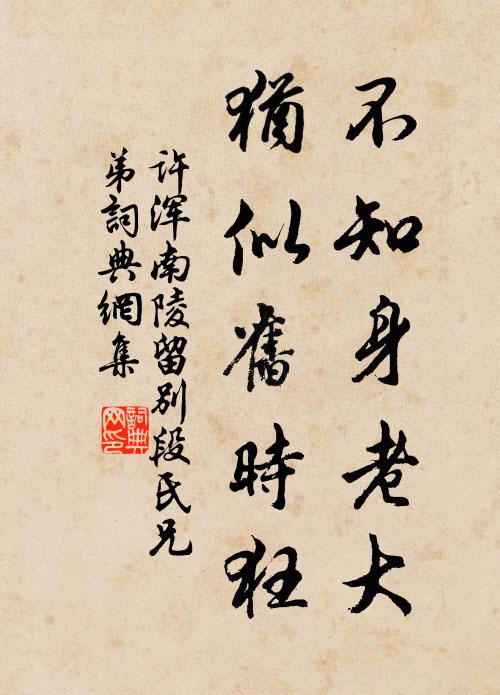 不知身老大
猶似舊時狂
许浑南陵留别段氏兄
弟詞典網集
詞典网印